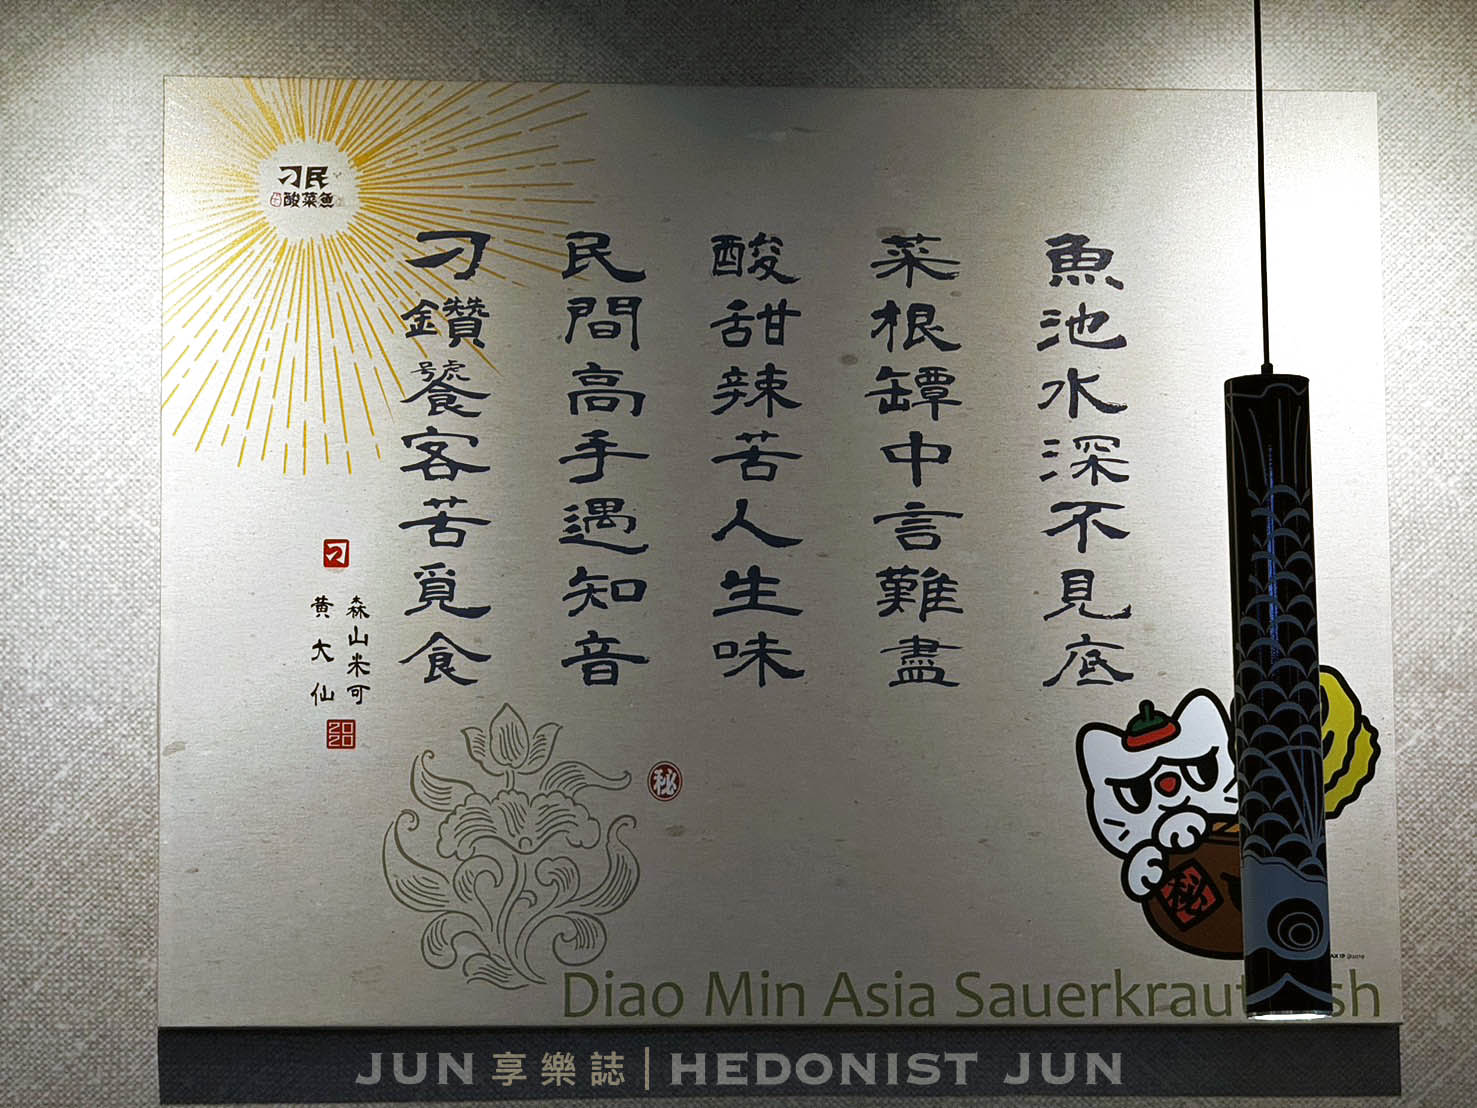 刁民
酸菜魚
刁鑽饕客苦覓食
民間高手遇知音
酸甜辣苦人生味
菜根罈中言難盡
魚池水深不見底
刁
森山米可
黄大仙
2020
秘
秘
Diao Min Asia Sauerkraut sh
JUN 享樂誌 | HEDONIST JUN